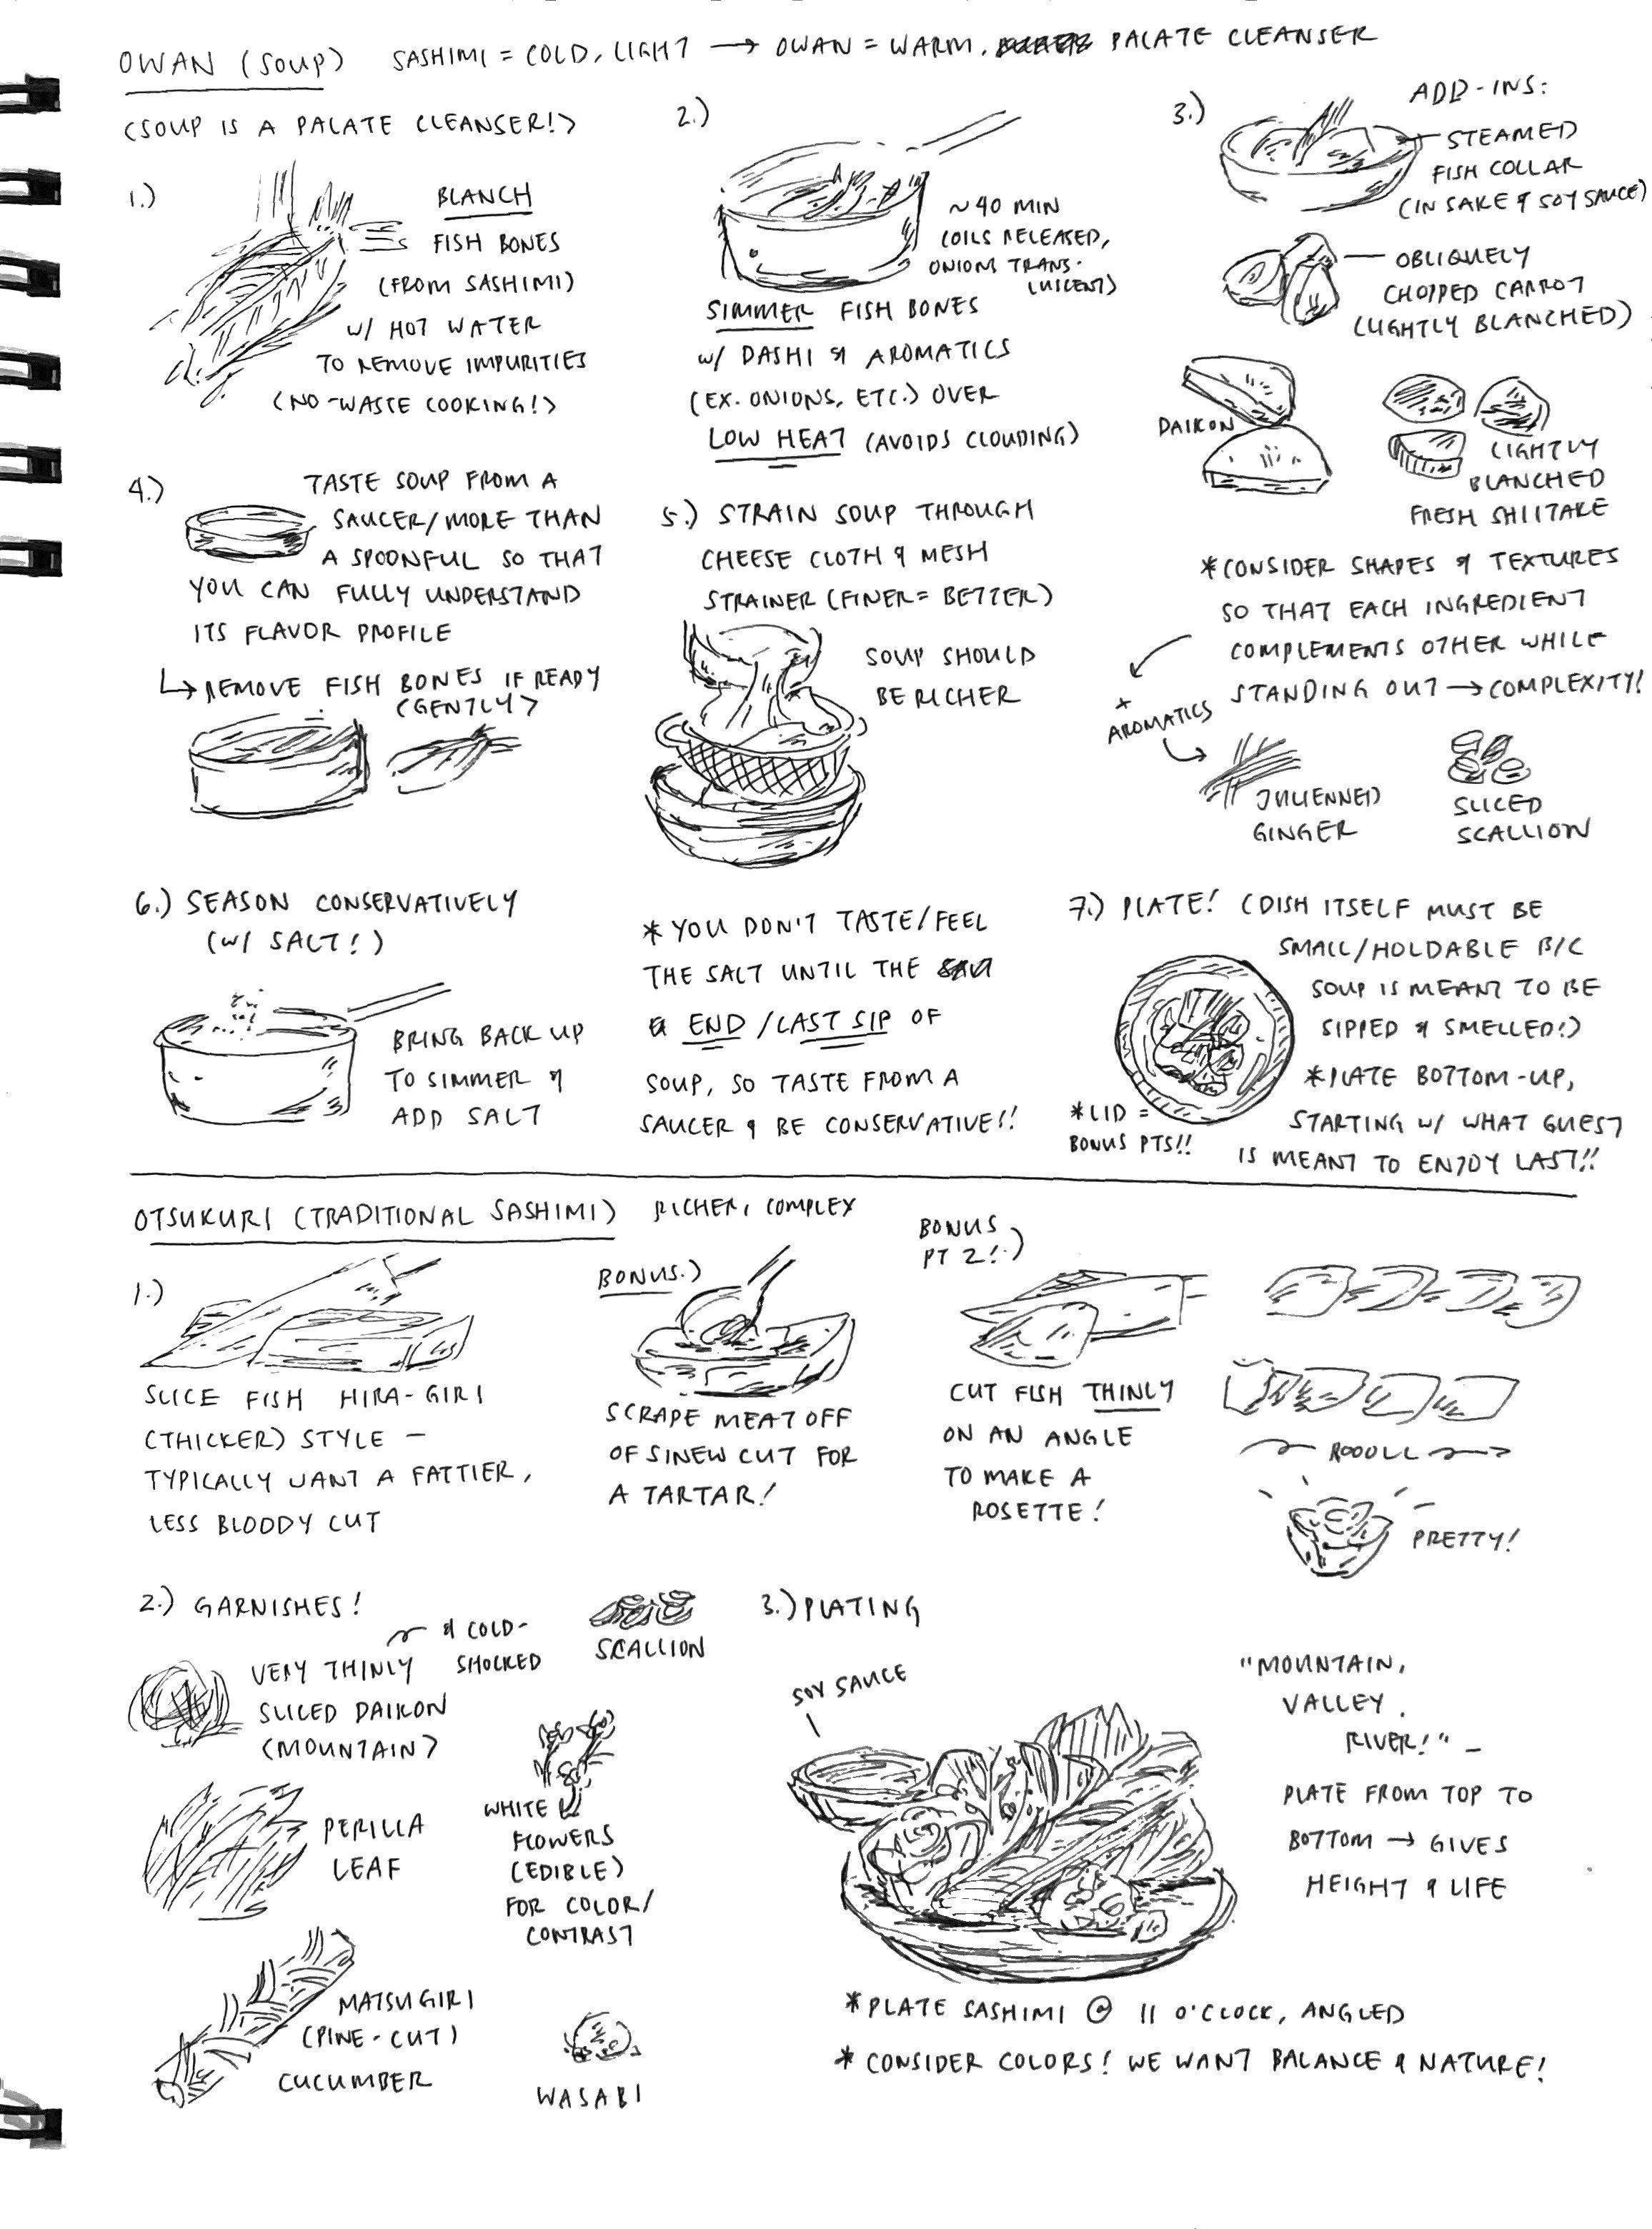 OWAN (SOUP) SASHIMI = COLD, LIGHT → OWAN = WARM, PALATE CLEANSER
(SOUP IS A PALATE CLEANSER!)
1.)
BLANCH
FISH BONES
(FROM SASHIMI)
W/ HOT WATER
TO REMOVE IMPURITIES
(NO-WASTE COOKING!)
2.)
~40 MIN
(OILS RELEASED,
ONIONS TRANS-
LUSCENT)
SIMMER FISH BONES
W/ DASHI & AROMATICS
(EX. ONIONS, ETC.) OVER
LOW HEAT (AVOIDS CLOUDING)
3.)
ADD-INS:
STEAMED
FISH COLLAR
(IN SAKE & SOY SAUCE)
OBLIQUELY
CHOPPED CARROT
(LIGHTLY BLANCHED)
DAIKON
LIGHTLY
BLANCHED
FRESH SHIITAKE
*CONSIDER SHAPES & TEXTURES
SO THAT EACH INGREDIENT
COMPLEMENTS OTHER WHILE
STANDING OUT → COMPLEXITY!
+
AROMATICS
JULIENNED
GINGER
SLICED
SCALLION
4.)
TASTE SOUP FROM A
SAUCER/MORE THAN
A SPOONFUL SO THAT
YOU CAN FULLY UNDERSTAND
ITS FLAVOR PROFILE
↳ REMOVE FISH BONES IF READY
(GENTLY)
5.) STRAIN SOUP THROUGH
CHEESE CLOTH & MESH
STRAINER (FINER = BETTER)
SOUP SHOULD
BE RICHER
6.) SEASON CONSERVATIVELY
(W/ SALT!)
BRING BACK UP
TO SIMMER &
ADD SALT
*YOU DON'T TASTE/FEEL
THE SALT UNTIL THE
END/LAST SIP OF
SOUP, SO TASTE FROM A
SAUCER & BE CONSERVATIVE!!
7.) PLATE! (DISH ITSELF MUST BE
SMALL/HOLDABLE B/C
SOUP IS MEANT TO BE
SIPPED & SMELLED!)
*PLATE BOTTOM-UP,
STARTING W/ WHAT GUEST
IS MEANT TO ENJOY LAST!!
*LID =
BONUS PTS!!
OTSUKURI (TRADITIONAL SASHIMI) RICHER, COMPLEX
1.)
SLICE FISH HIRA-GIRI
(THICKER) STYLE –
TYPICALLY WANT A FATTIER,
LESS BLOODY CUT
BONUS.)
SCRAPE MEAT OFF
OF SINEW CUT FOR
A TARTAR!
BONUS
PT 2!.)
CUT FISH THINLY
ON AN ANGLE
TO MAKE A
ROSETTE!
ROOOLL
PRETTY!
2.) GARNISHES!
& COLD-
SHOCKED
VERY THINLY
SLICED DAIKON
(MOUNTAIN)
SCALLION
PERILLA
LEAF
WHITE
FLOWERS
(EDIBLE)
FOR COLOR/
CONTRAST
MATSUGIRI
(PINE-CUT)
CUCUMBER
WASABI
3.) PLATING
SOY SAUCE
"MOUNTAIN,
VALLEY,
RIVER!" –
PLATE FROM TOP TO
BOTTOM → GIVES
HEIGHT & LIFE
*PLATE SASHIMI @ 11 O'CLOCK, ANGLED
*CONSIDER COLORS! WE WANT BALANCE & NATURE!